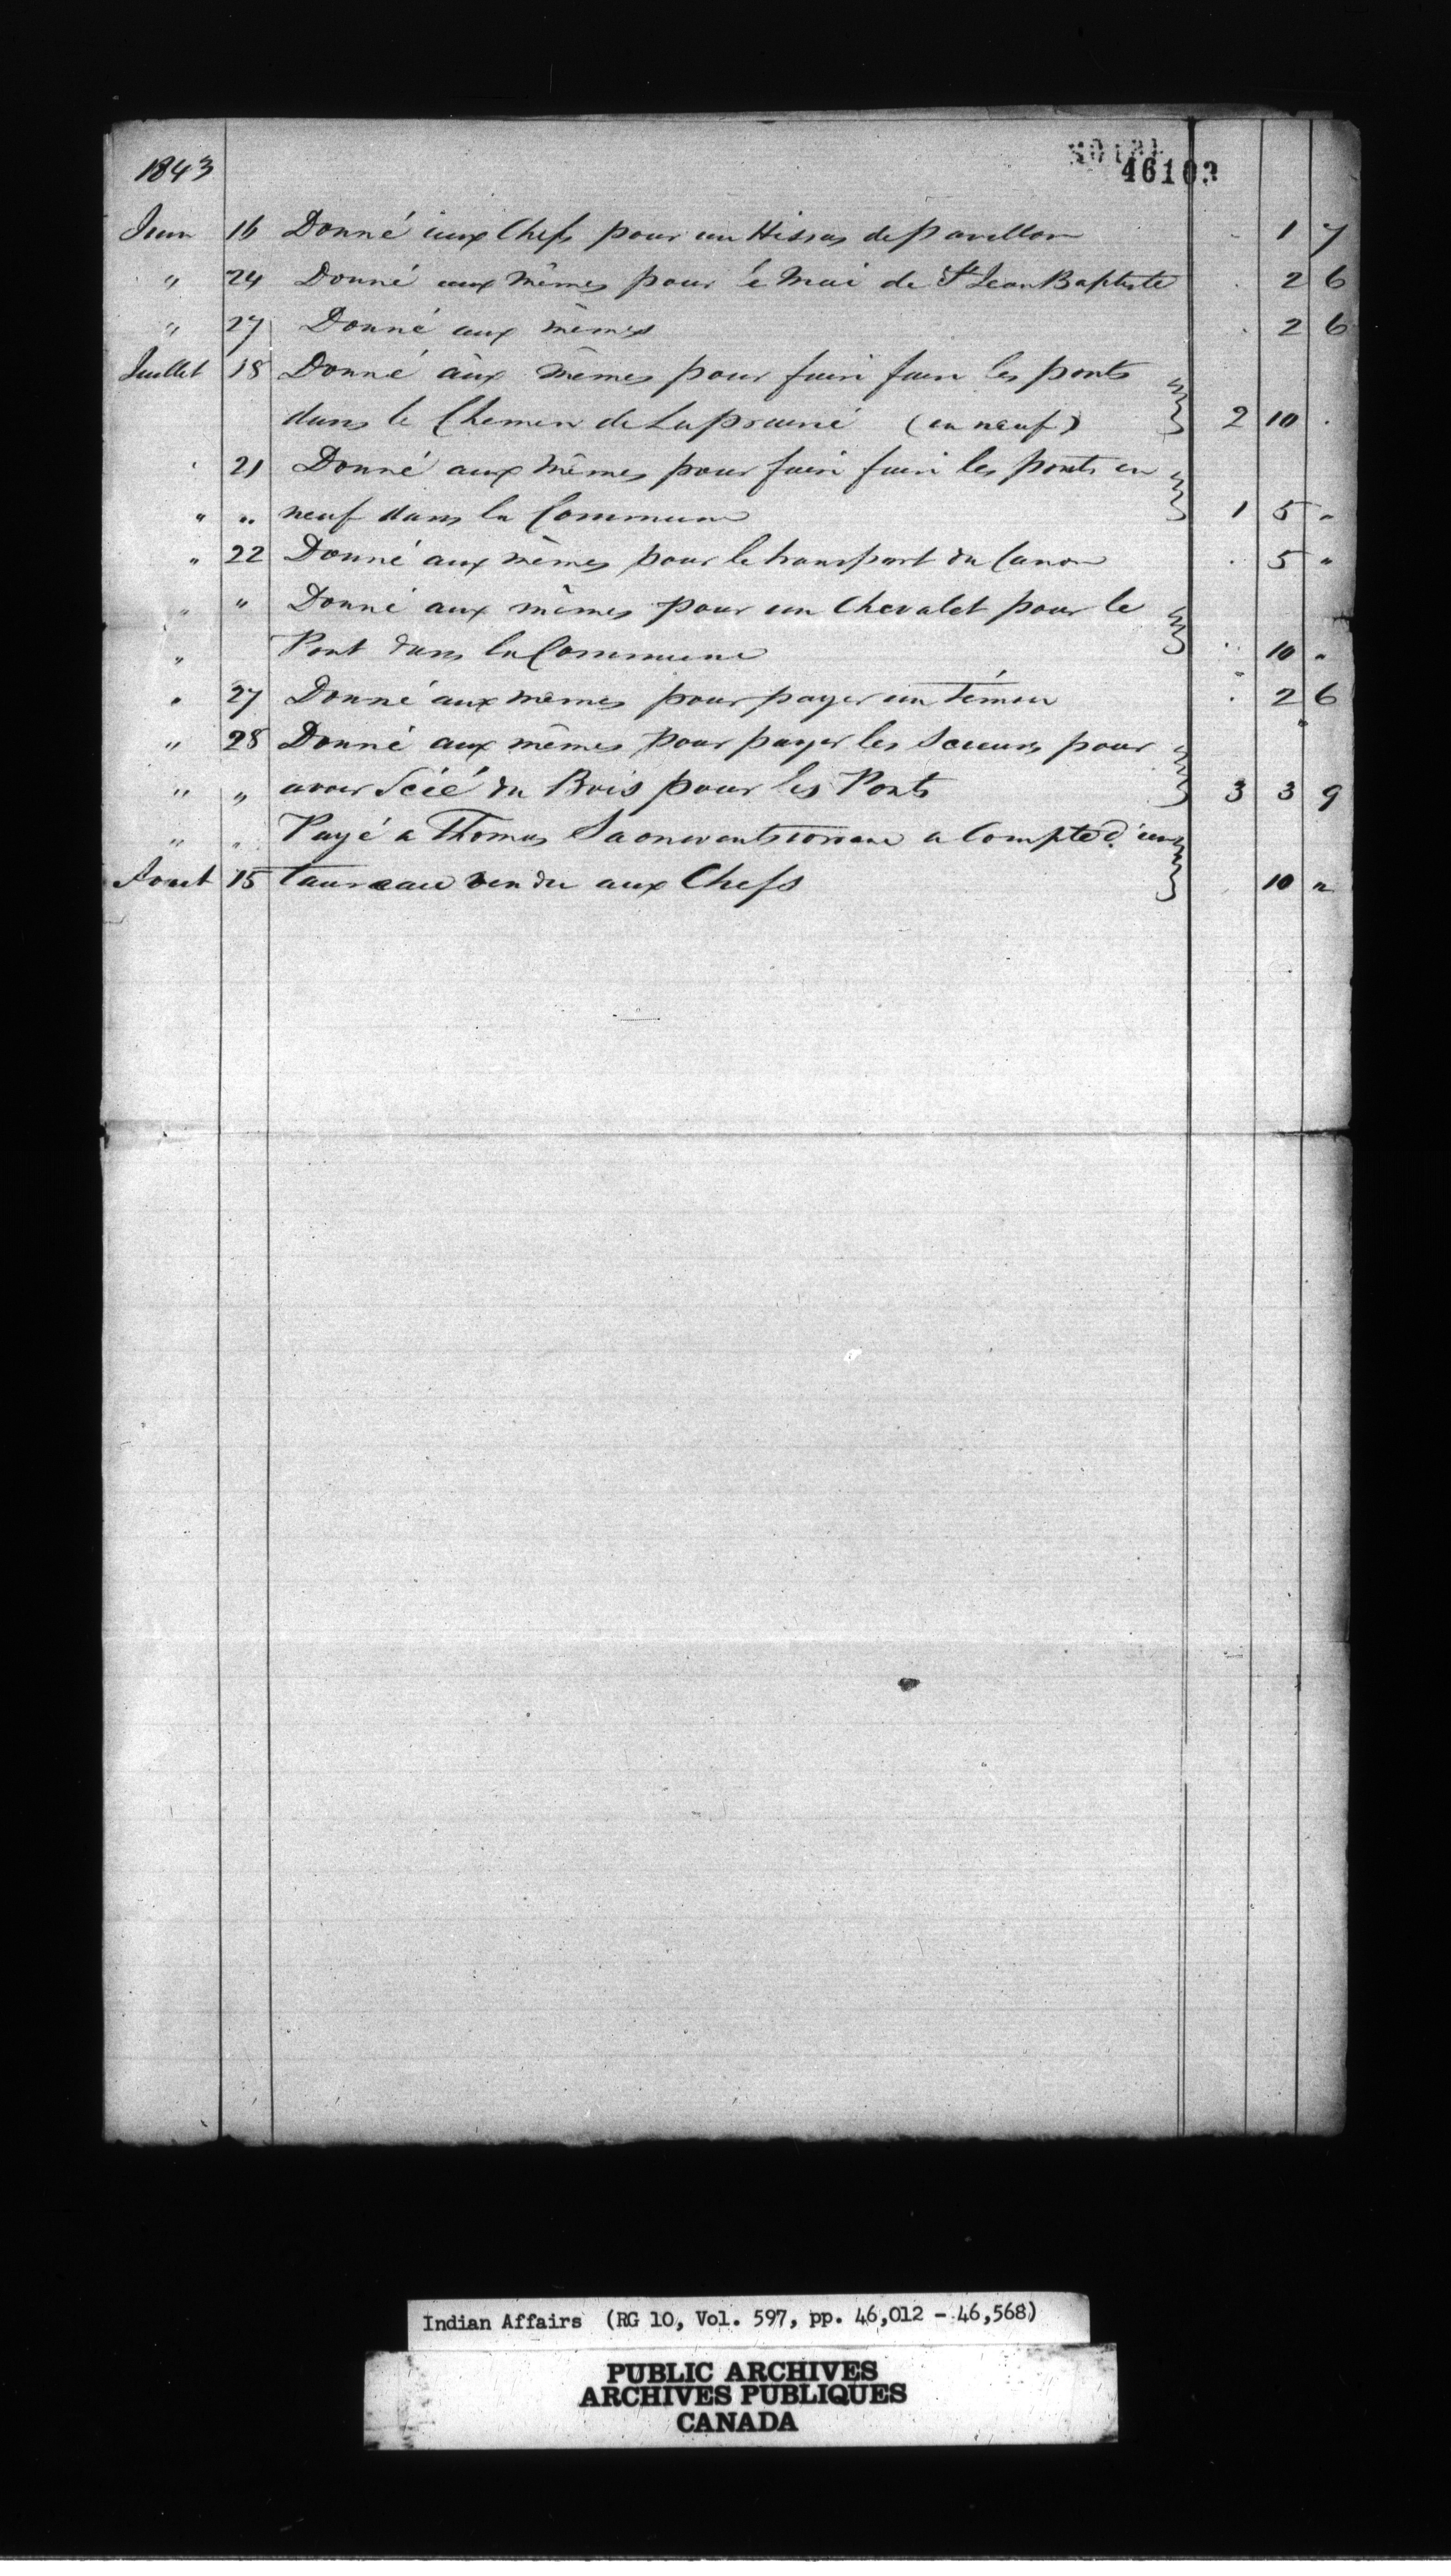 1843
46103
Juin 16 Donné aux Chefs pour un Hissas de pavillon - 1 7
" 24 Donné aux mêmes pour le Mai de St Jean Baptiste . 2 6
" 27 Donné aux mêmes . 2 6
Juillet 18 Donné aux mêmes pour faire faire les ponts
dans le Chemin de Laprairie (en neuf) 2 10 .
21 Donné aux mêmes pour faire faire les ponts en
" " neuf dans la Commune 1 5 "
" 22 Donné aux mêmes pour le transport du Canon . 5 "
" " Donné aux mêmes pour un Chevalet pour le
" Pont dans la Commune . 10 "
" 27 Donné aux mêmes pour payer un Témoin . 2 6
" 28 Donné aux mêmes pour payer les Scieurs pour
" " avoir Scié du Bois pour les Ponts 3 3 9
" " Payé a Thomas a Compte d'un
Aout 15 taureau vendu aux Chefs 10 "
Indian Affairs (RG 10, Vol. 597, pp. 46,012 - 46,568)
PUBLIC ARCHIVES
ARCHIVES PUBLIQUES
CANADA